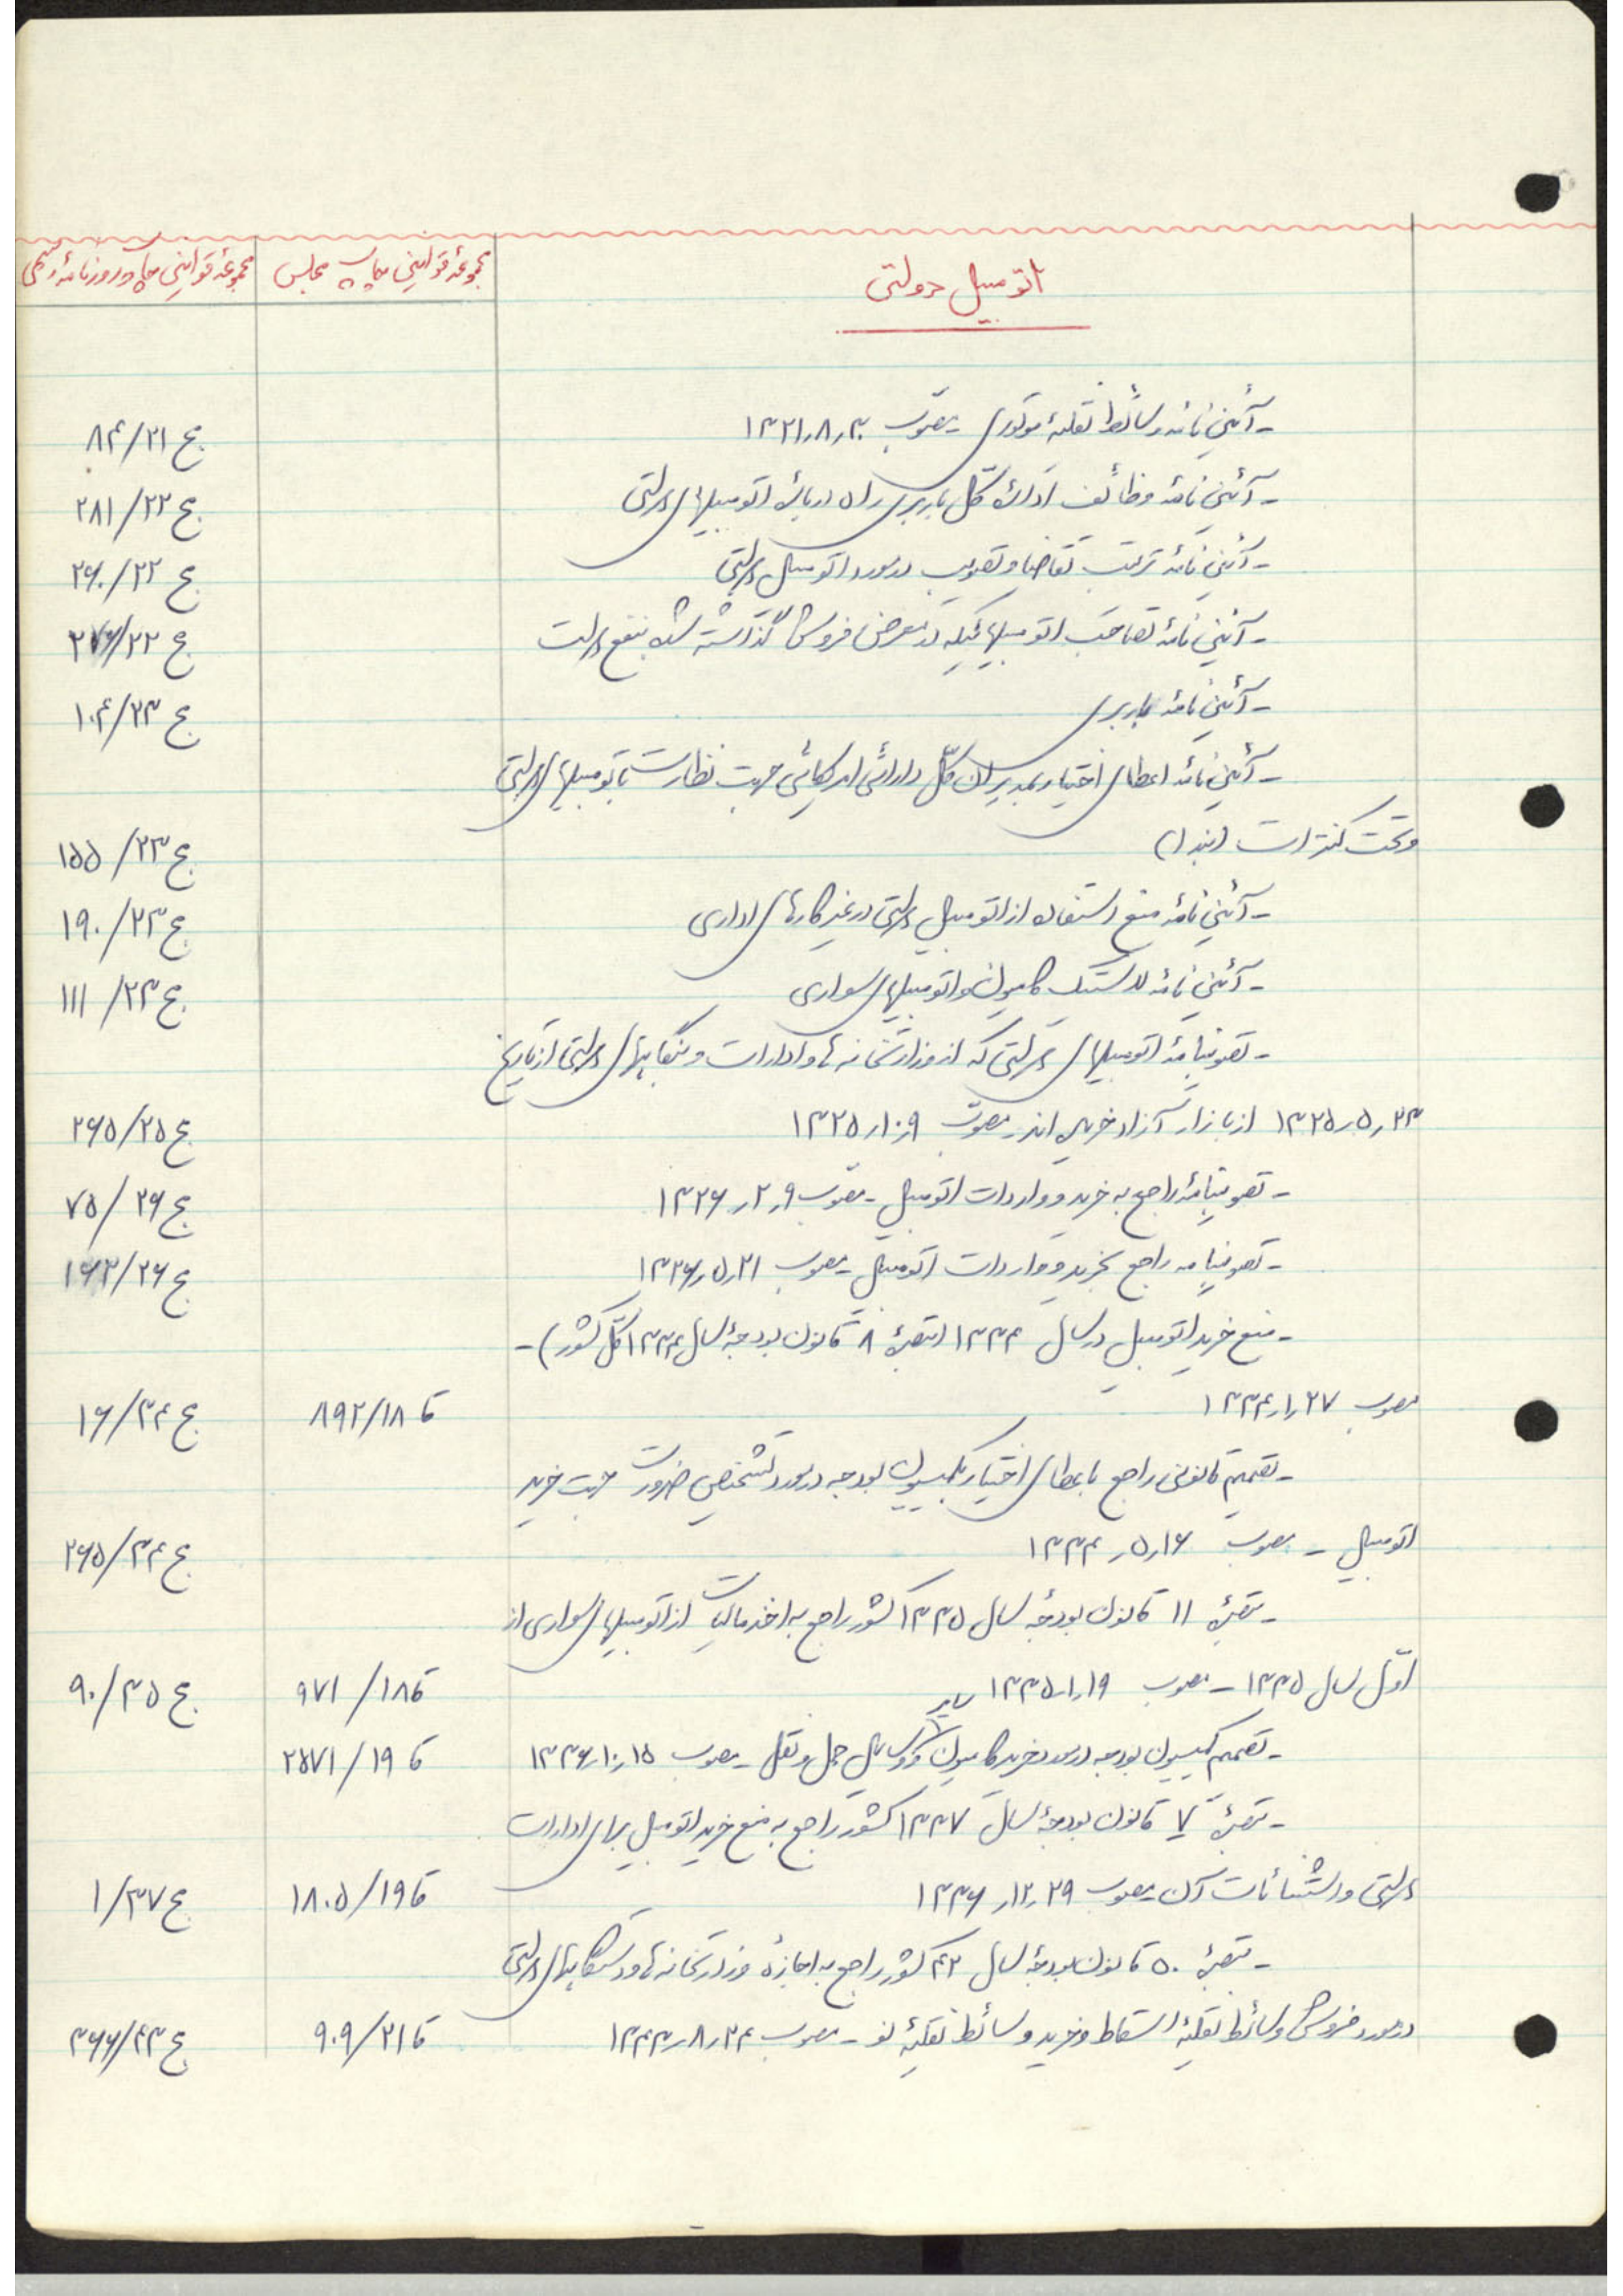 اتومبیل دولتی	مجموعهٔ قوانین چاپ مجلس	مجموعهٔ قوانین چاپ روزنامهٔ رسمی
- آئین نامه وسائط نقلیهٔ موتوری - مصوب ۱۳۲۱٫۸٫۳۰	ج ۸۴/۲۱
- آئین نامهٔ وظائف ادارهٔ کل باربری راه دربارهٔ اتومبیلهای دولتی	ج ۲۸۱/۲۲
- آئین نامهٔ ترتیب تقاضا و تصویب در مورد اتومبیل دولتی	ج ۲۶۰/۲۲
- آئین نامهٔ تصاحب اتومبیلهائیکه در معرض فروش گذاشته شده بنفع دولت	ج ۲۷۶/۲۲
- آئین نامهٔ باربری	ج ۱۰۴/۲۳
- آئین نامهٔ اعطای اختیار بمدیران کل دارائی امریکائی جهت نظارت باتومبیلهای دولتی
و تحت کنترات (بند ۱)	ج ۱۵۵/۲۳
- آئین نامهٔ منع استفاده از اتومبیل دولتی در غیر کارهای اداری	ج ۱۹۰/۲۳
- آئین نامهٔ لاستیک کامیون و اتومبیلهای سواری	ج ۱۱۱/۲۳
- تصویبنامهٔ اتومبیلهای دولتی که از وزارتخانه ها و ادارات و بنگاههای دولتی از تاریخ
۱۳۲۵٫۵٫۲۳ از بازار آزاد خریده اند - مصوب ۱۳۲۵٫۱۰٫۹	ج ۲۶۵/۲۵
- تصویبنامهٔ راجع به خرید و واردات اتومبیل - مصوب ۱۳۲۶٫۲٫۹	ج ۷۵/۲۶
- تصویبنامه راجع بخرید و واردات اتومبیل - مصوب ۱۳۲۶٫۵٫۲۱	ج ۱۶۲/۲۶
- منع خرید اتومبیل در سال ۱۳۳۴ (تبصرهٔ ۸ قانون بودجهٔ سال ۱۳۳۴ کل کشور) -
مصوب ۱۳۳۴٫۱٫۲۷	قا ۸۹۲/۱۸	ج ۱۶/۳۴
- تصمیم قانونی راجع باعطای اختیار بکمیسیون بودجه در مورد تشخیص ضرورت جهت خرید
اتومبیل - مصوب ۱۳۳۴٫۵٫۱۶	ج ۲۶۵/۳۴
- تبصرهٔ ۱۱ قانون بودجهٔ سال ۱۳۳۵ کشور راجع به اخذ مالیات از اتومبیلهای سواری از
اوّل سال ۱۳۳۵ - مصوب ۱۳۳۵٫۱٫۱۹	قا ۹۷۱/۱۸	ج ۹۰/۳۵
- تصمیم کمیسیون بودجه در مورد خرید کامیون و سایر وسایل حمل و نقل - مصوب ۱۳۳۶٫۱۰٫۱۵	قا ۲۵۷۱/۱۹
- تبصرهٔ ۷ قانون بودجهٔ سال ۱۳۳۷ کشور راجع به منع خرید اتومبیل برای ادارات
دولتی و استثنائات آن - مصوب ۱۳۳۶٫۱۲٫۲۹	قا ۱۸۰۵/۱۹	ج ۱/۳۷
- تبصرهٔ ۵۰ قانون بودجهٔ سال ۴۲ کشور راجع به اجازهٔ وزارتخانه ها و دستگاههای دولتی
در مورد فروش وسائط نقلیهٔ اسقاط و خرید وسائط نقلیهٔ نو - مصوب ۱۳۴۳٫۸٫۲۴	قا ۹۰۹/۲۱	ج ۳۶۶/۴۳